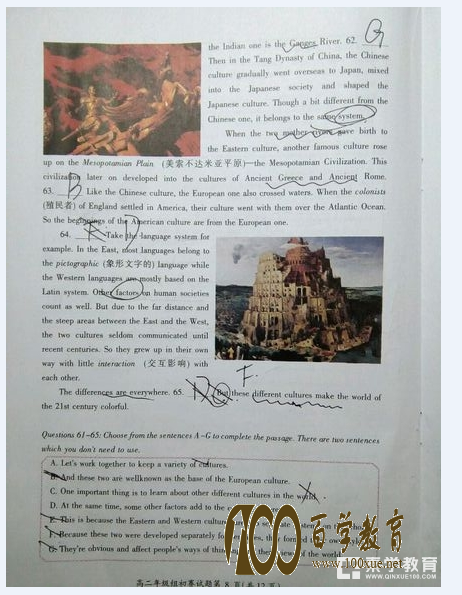 the Indian one is the Ganges River. 62. G
Then in the Tang Dynasty of China, the Chinese
culture gradually went overseas to Japan, mixed
into the Japanese society and shaped the
Japanese culture. Though a bit different from the
Chinese one, it belongs to the same system.
When the two mother rivers gave birth to
the Eastern culture, another famous culture rose
up on the Mesopotamian Plain (美索不达米亚平原)—the Mesopotamian Civilization. This
civilization later on developed into the cultures of Ancient Greece and Ancient Rome.
63. B Like the Chinese culture, the European one also crossed waters. When the colonists
(殖民者) of England settled in America, their culture went with them over the Atlantic Ocean.
So the beginnings of the American culture are from the European one.
64. E D Take the language system for
example. In the East, most languages belong to
the pictographic (象形文字的) language while
the Western languages are mostly based on the
Latin system. Other factors on human societies
count as well. But due to the far distance and
the steep areas between the East and the West,
the two cultures seldom communicated until
recent centuries. So they grew up in their own
way with little interaction (交互影响) with
each other.
F.
The differences are everywhere. 65. But these different cultures make the world of
the 21st century colorful.
Questions 61-65: Choose from the sentences A-G to complete the passage. There are two sentences
which you don't need to use.
A. Let's work together to keep a variety of cultures.
B. And these two are wellknown as the base of the European culture.
C. One important thing is to learn about other different cultures in the world.
D. At the same time, some other factors add to the
E. This is because the Eastern and Western cultures
F. Because these two were developed separately for centuries, they formed their own
G. They're obvious and affect people's ways of thinking and their views of the world.
100百学教育
www.100xue.net
索学教育
www.qinxue100.com
高二年级组初赛试题第 8 页(共12页)